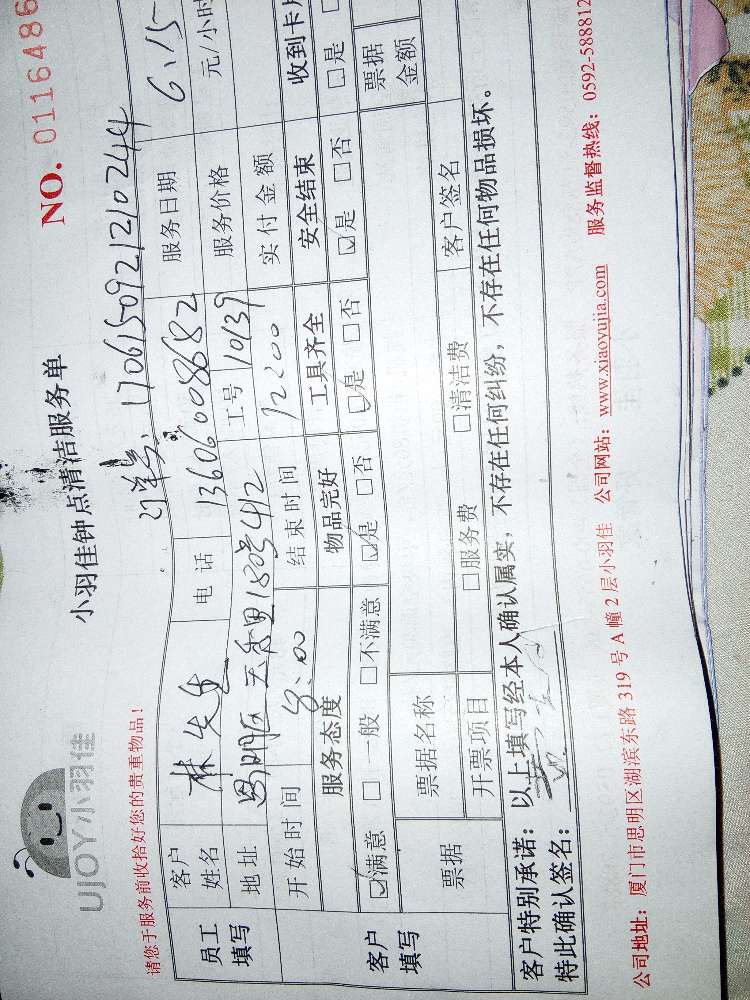 UJOY小羽佳
小羽佳钟点清洁服务单
NO. 0116486
请您于服务前收拾好您的贵重物品！
订单号：1706150921210244
员工填写
客户姓名 林先生 电话 13606008682 服务日期 6.15
地址 思明区 180号412 工号 10139 服务价格 元/小时
开始时间 8:00 结束时间 12:00 实付金额
客户填写
服务态度 物品完好 工具齐全 安全结束 收到卡片
☑满意 □一般 □不满意 ☑是 □否 ☑是 □否 ☑是 □否 □是
票据 票据名称 票据金额
开票项目 □服务费 □清洁费 客户签名
客户特别承诺：以上填写经本人确认属实，不存在任何纠纷，不存在任何物品损坏。
特此确认签名：
公司地址：厦门市思明区湖滨东路 319 号 A 幢 2 层小羽佳 公司网站：www.xiaoyujia.com 服务监督热线：0592-588812